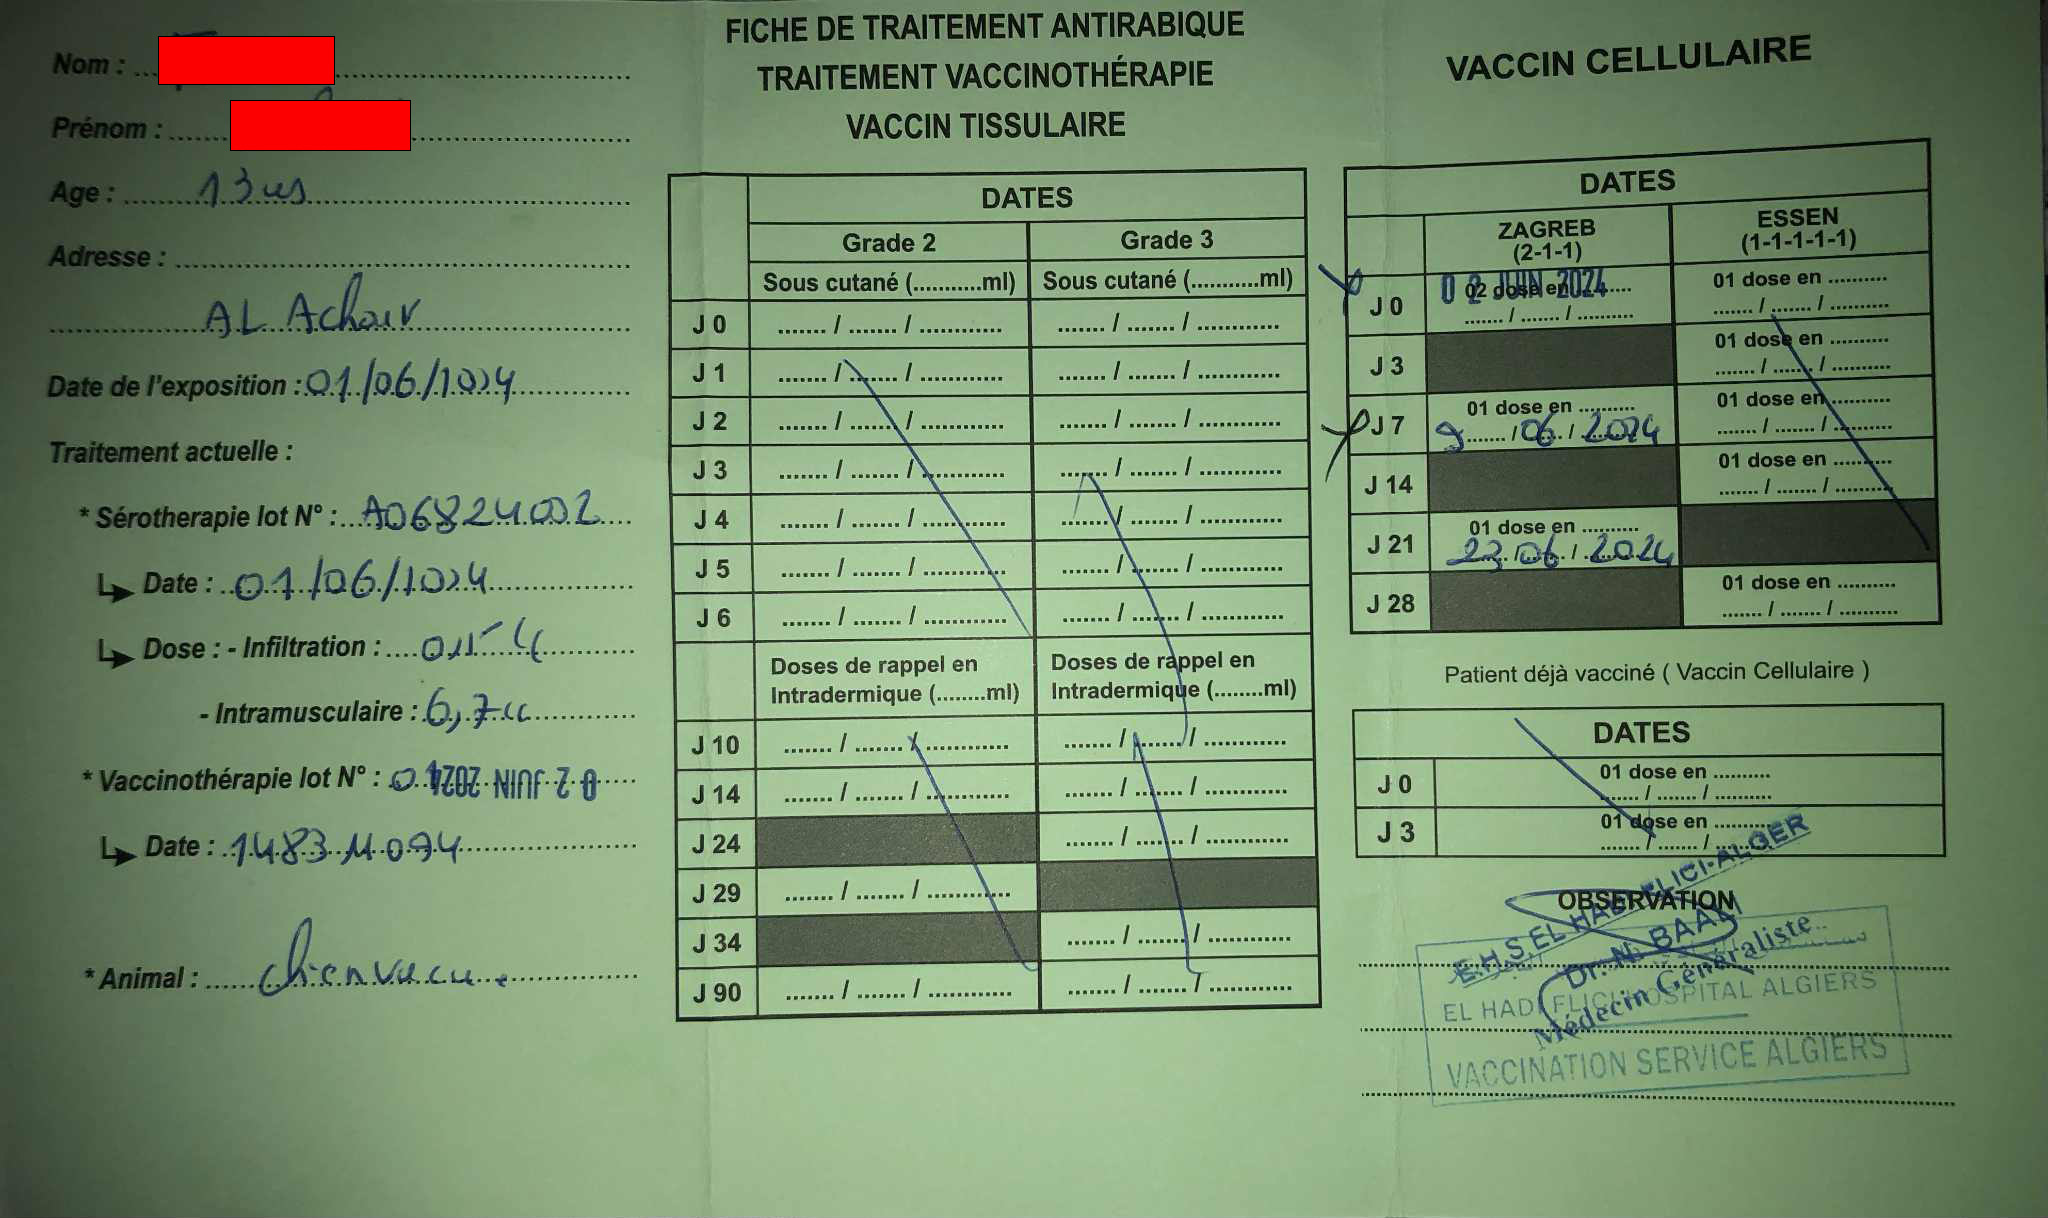 Nom :
Prénom :
Age : 13 ans
Adresse :
AL Achour
Date de l'exposition : 01/06/2024
Traitement actuelle :
* Sérotherapie lot N° : A06824002
Date : 01/06/2024
Dose : - Infiltration :
- Intramusculaire : 6,7 cc
* Vaccinothérapie lot N° : 02 JUIN 2024
Date : 1483M094
* Animal : chien
FICHE DE TRAITEMENT ANTIRABIQUE
TRAITEMENT VACCINOTHÉRAPIE
VACCIN TISSULAIRE
DATES
Grade 2 Grade 3
Sous cutané (...........ml) Sous cutané (...........ml)
J 0 ....... / ....... / ............ ....... / ....... / ............
J 1 ....... / ....... / ............ ....... / ....... / ............
J 2 ....... / ....... / ............ ....... / ....... / ............
J 3 ....... / ....... / ............ ....... / ....... / ............
J 4 ....... / ....... / ............ ....... / ....... / ............
J 5 ....... / ....... / ............ ....... / ....... / ............
J 6 ....... / ....... / ............ ....... / ....... / ............
Doses de rappel en Doses de rappel en
Intradermique (........ml) Intradermique (........ml)
J 10 ....... / ....... / ............ ....... / ....... / ............
J 14 ....... / ....... / ............ ....... / ....... / ............
J 24 ....... / ....... / ............
J 29 ....... / ....... / ............
J 34 ....... / ....... / ............
J 90 ....... / ....... / ............ ....... / ....... / ............
VACCIN CELLULAIRE
DATES
ZAGREB ESSEN
(2-1-1) (1-1-1-1-1)
02 JUIN 2024
J 0 02 dose en .......... 01 dose en ..........
....... / ....... / .......... ....... / ....... / ..........
J 3 01 dose en ..........
....... / ....... / ..........
J 7 01 dose en .......... 01 dose en ..........
9 / 06 / 2024 ....... / ....... / ..........
J 14 01 dose en ..........
....... / ....... / ..........
J 21 01 dose en ..........
23 / 06 / 2024
J 28 01 dose en ..........
....... / ....... / ..........
Patient déjà vacciné ( Vaccin Cellulaire )
DATES
J 0 01 dose en ..........
....... / ....... / ..........
J 3 01 dose en ..........
....... / ....... / ..........
OBSERVATION
E.H.S. EL HADI FLICI-ALGER
Dr. N. BAALI
Médecin Généraliste
EL HADI FLICI HOSPITAL ALGIERS
VACCINATION SERVICE ALGIERS